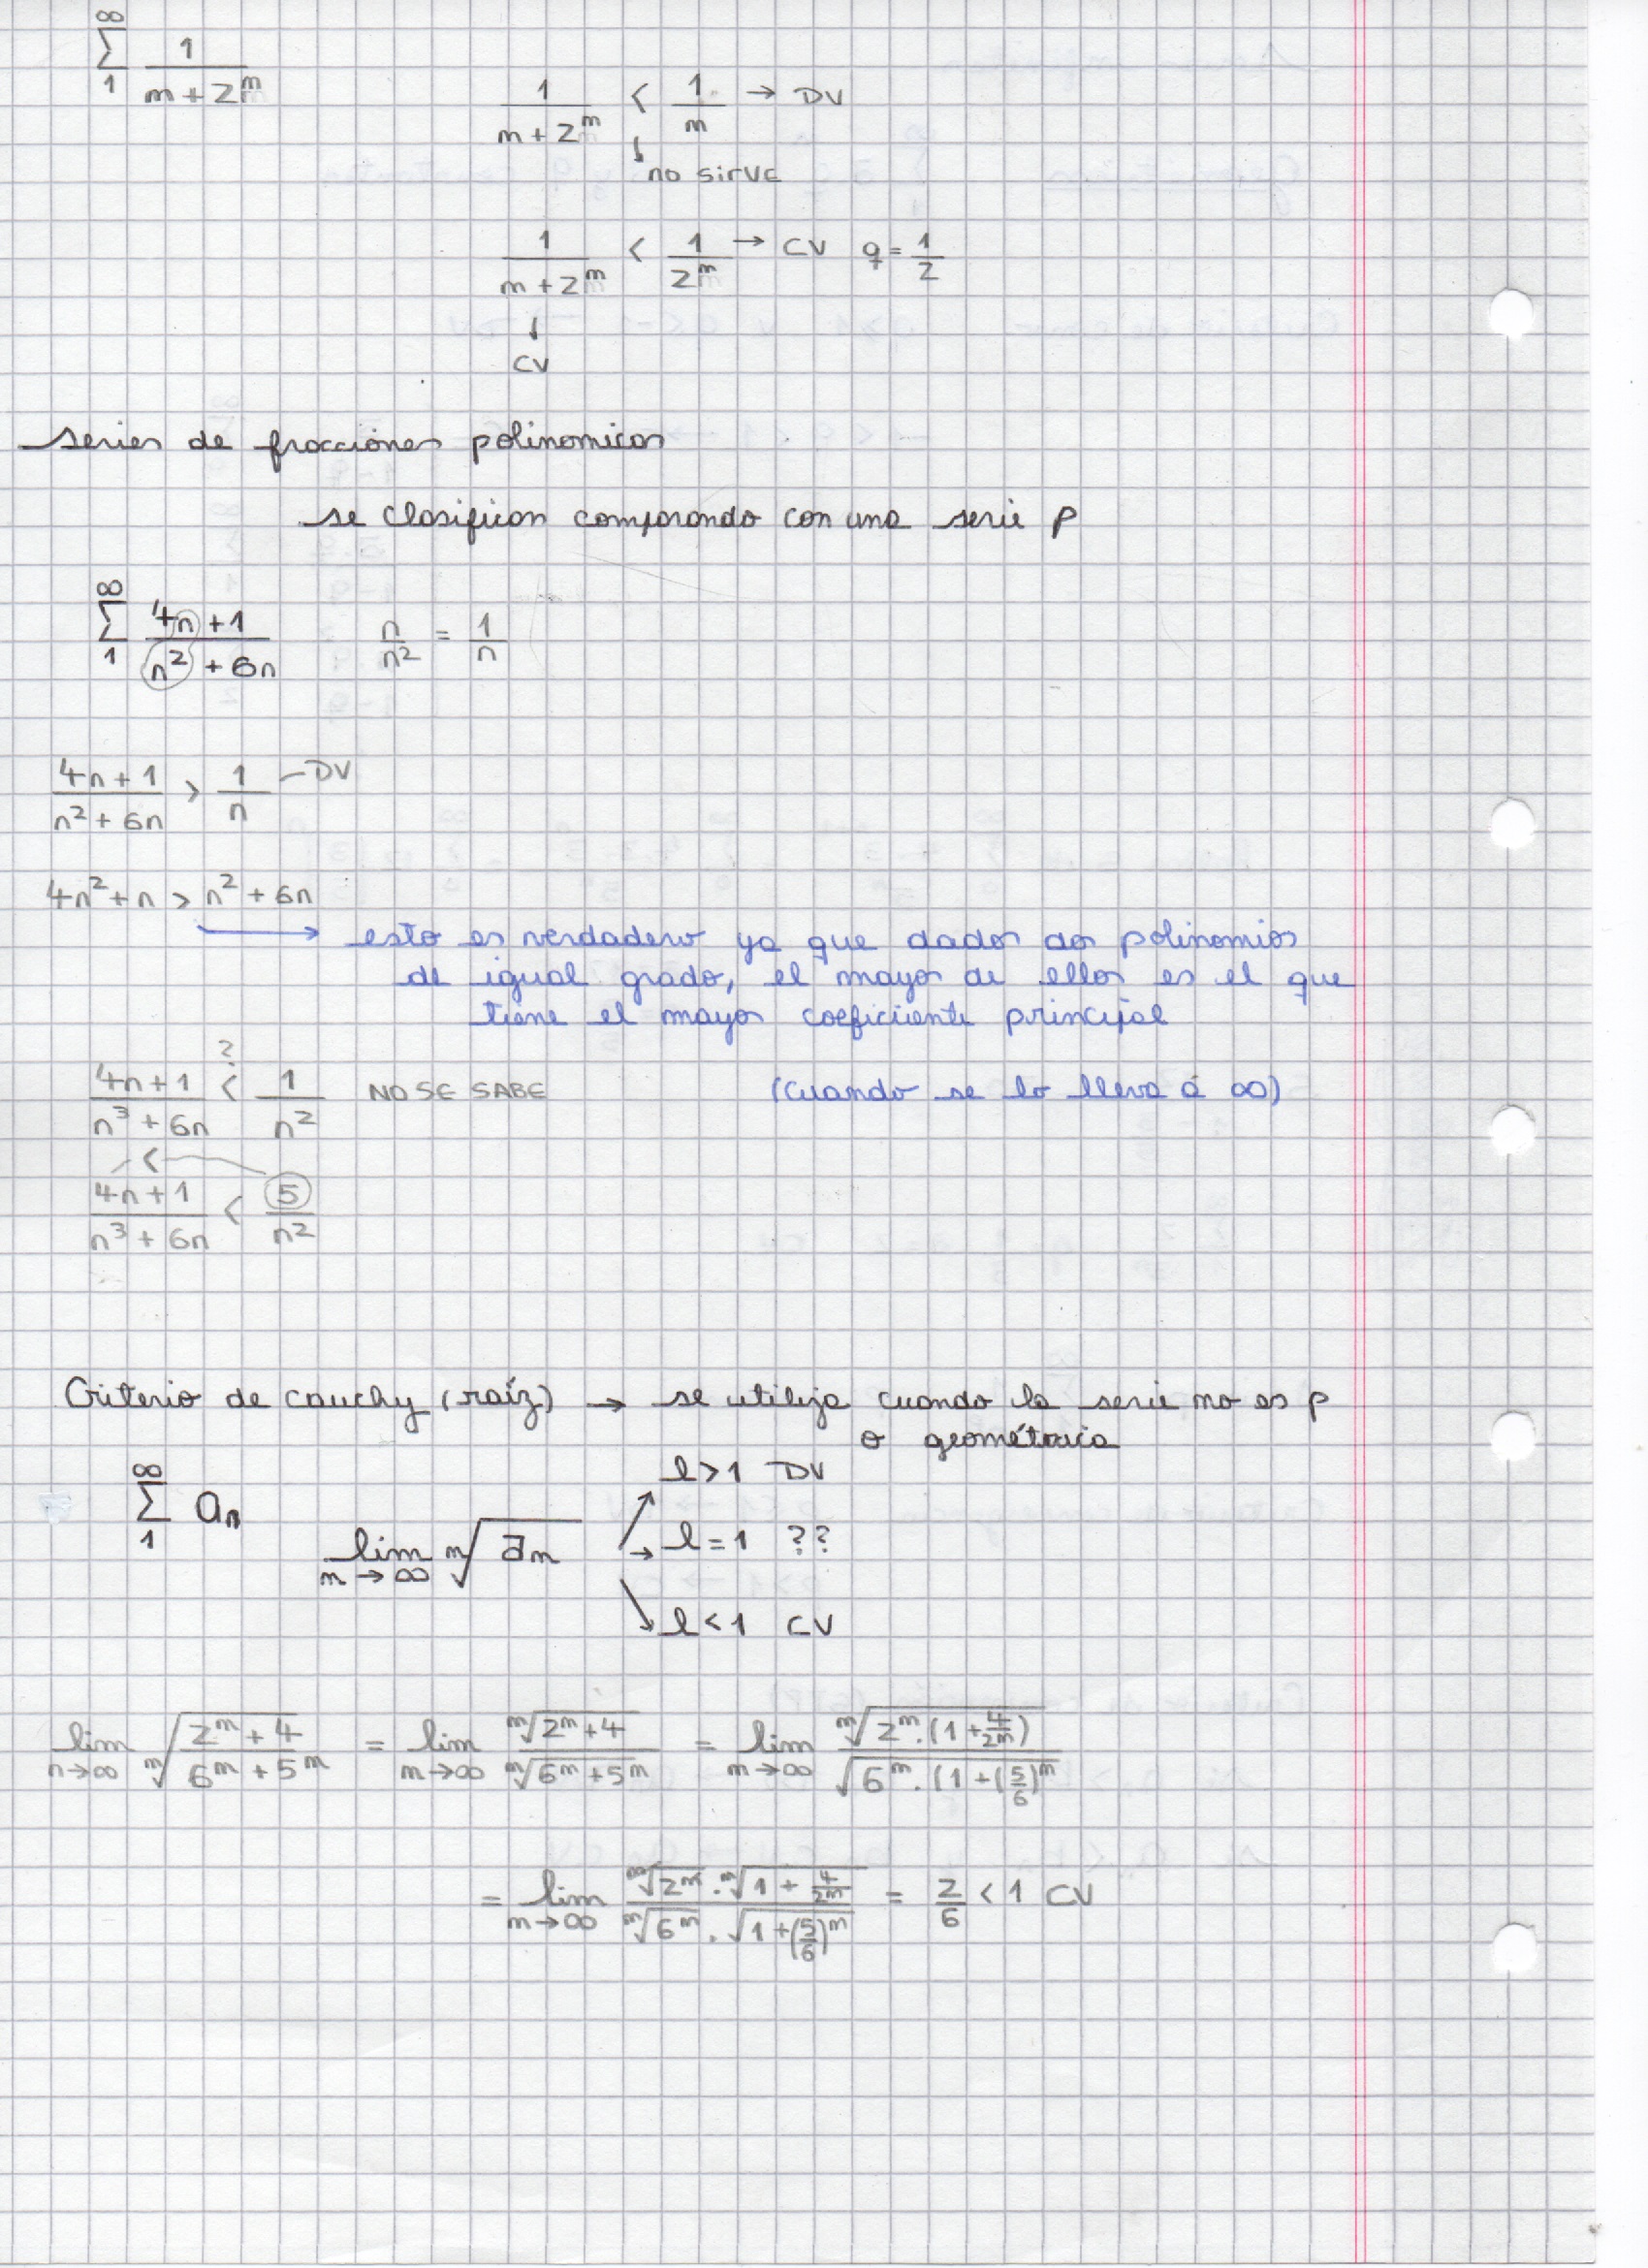 ∞
∑ 1/(m+2^m)
1
1/(m+2^m) < 1/m → DV
↓
no sirve
1/(m+2^m) < 1/2^m → CV q=1/2
↓
CV
series de fracciones polinomicas
se clasifican comparando con una serie p
∞
∑ (4n+1)/(n²+6n) n/n² = 1/n
1
(4n+1)/(n²+6n) > 1/n – DV
4n²+n > n²+6n
→ esto es verdadero ya que dados dos polinomios
de igual grado, el mayor de ellos es el que
tiene el mayor coeficiente principal
(cuando se lo lleva a ∞)
?
(4n+1)/(n³+6n) < 1/n² NO SE SABE
<
(4n+1)/(n³+6n) < 5/n²
Criterio de cauchy (raíz) → se utiliza cuando la serie no es p
o geométrica
∞
∑ an
1
lim m→∞ ᵐ√(am)
↗ l>1 DV
→ l=1 ??
↘ l<1 CV
lim n→∞ ᵐ√((2^m+4)/(6^m+5^m)) = lim m→∞ ᵐ√(2^m+4)/ᵐ√(6^m+5^m) = lim m→∞ ᵐ√(2^m.(1+4/2^m))/√(6^m.(1+(5/6)^m
= lim m→∞ (ᵐ√2^m.ᵐ√(1+4/2^m))/(ᵐ√6^m.√(1+(5/6)^m)) = 2/6 < 1 CV